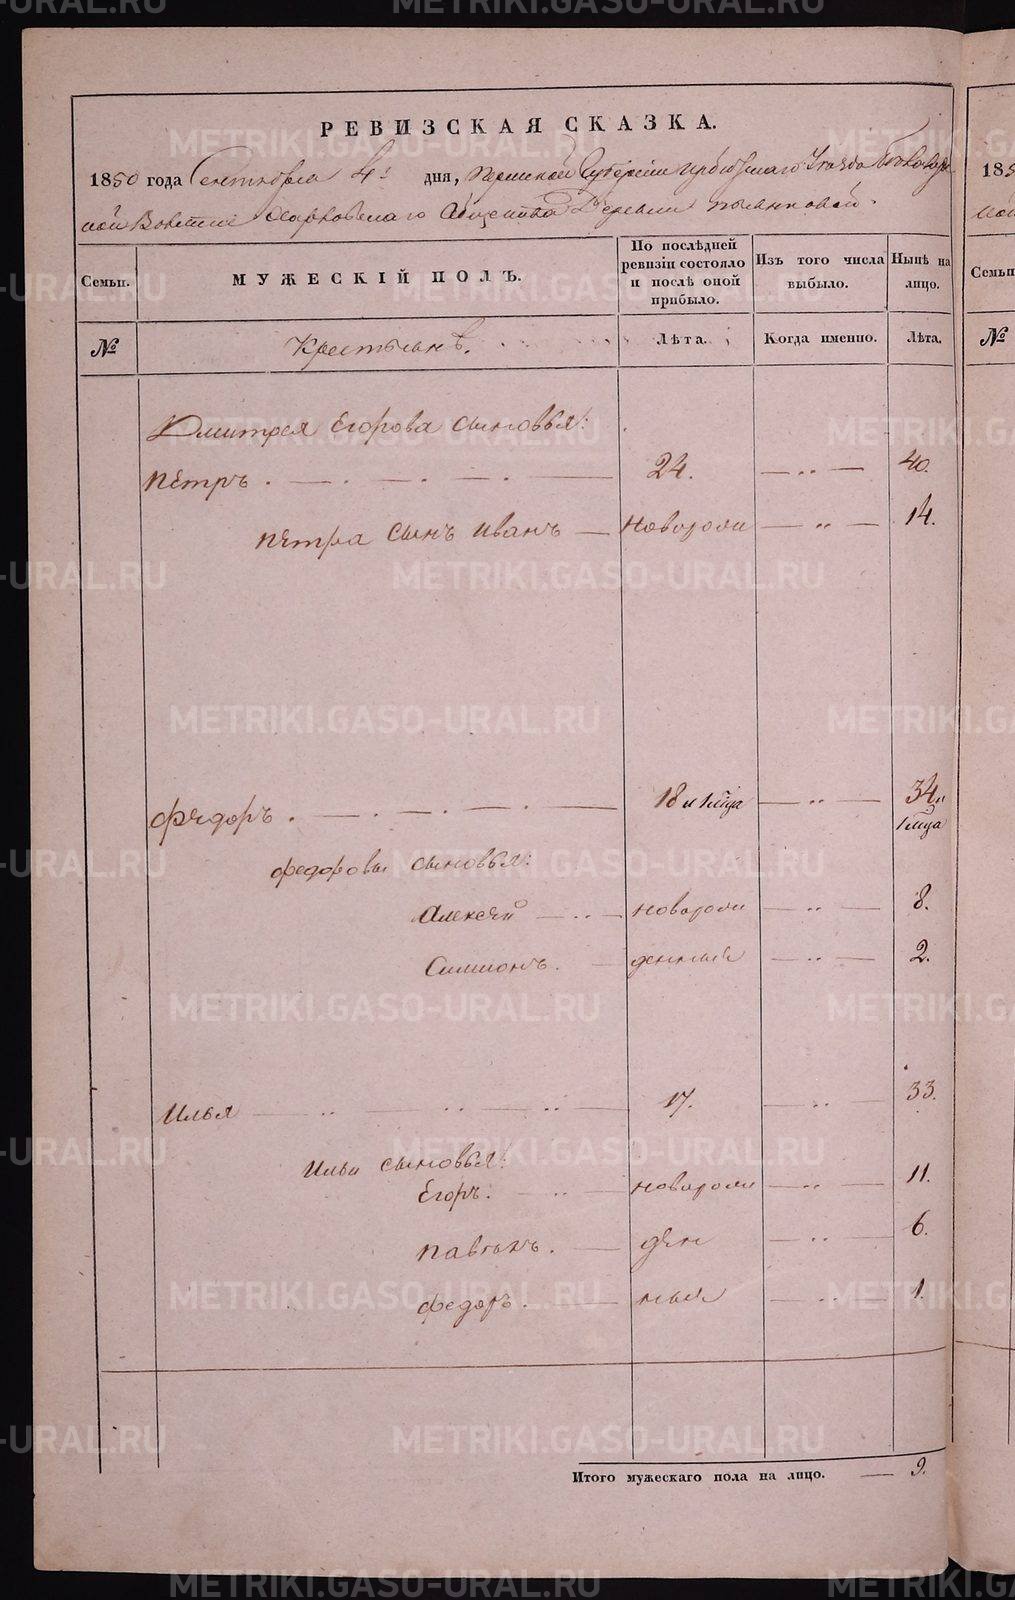 РЕВИЗСКАЯ СКАЗКА.
1850 года Сентября 4 дня, Пермской Губернiи Ирбитскаго Уезда
Волости Харловскаго Общества Деревни
Семьи. МУЖЕСКІЙ ПОЛЪ. По послѣдней ревизіи состояло и послѣ оной прибыло. Изъ того числа выбыло. Нынѣ на лицо.
№ Крестьянъ. Лѣта. Когда именно. Лѣта.
Дмитрея Егорова сыновья:
Пётръ. 24. — „ — 40.
Петра сынъ Иванъ — новорожи — „ — 14.
Фёдоръ. 18 и 1 мца — „ — 34 „
1 мца
Федоровы сыновья:
Алексѣй новорожи — „ — 8.
Симионъ. денныя — „ — 2.
Илья 17. — „ — 33.
Ильи сыновья:
Егоръ. новорожи — „ — 11.
ден — „ — 6.
Федоръ. ныя — „ — 1.
Итого мужескаго пола на лицо. — 9.
185
Семьи
№
METRIKI.GASO-URAL.RU